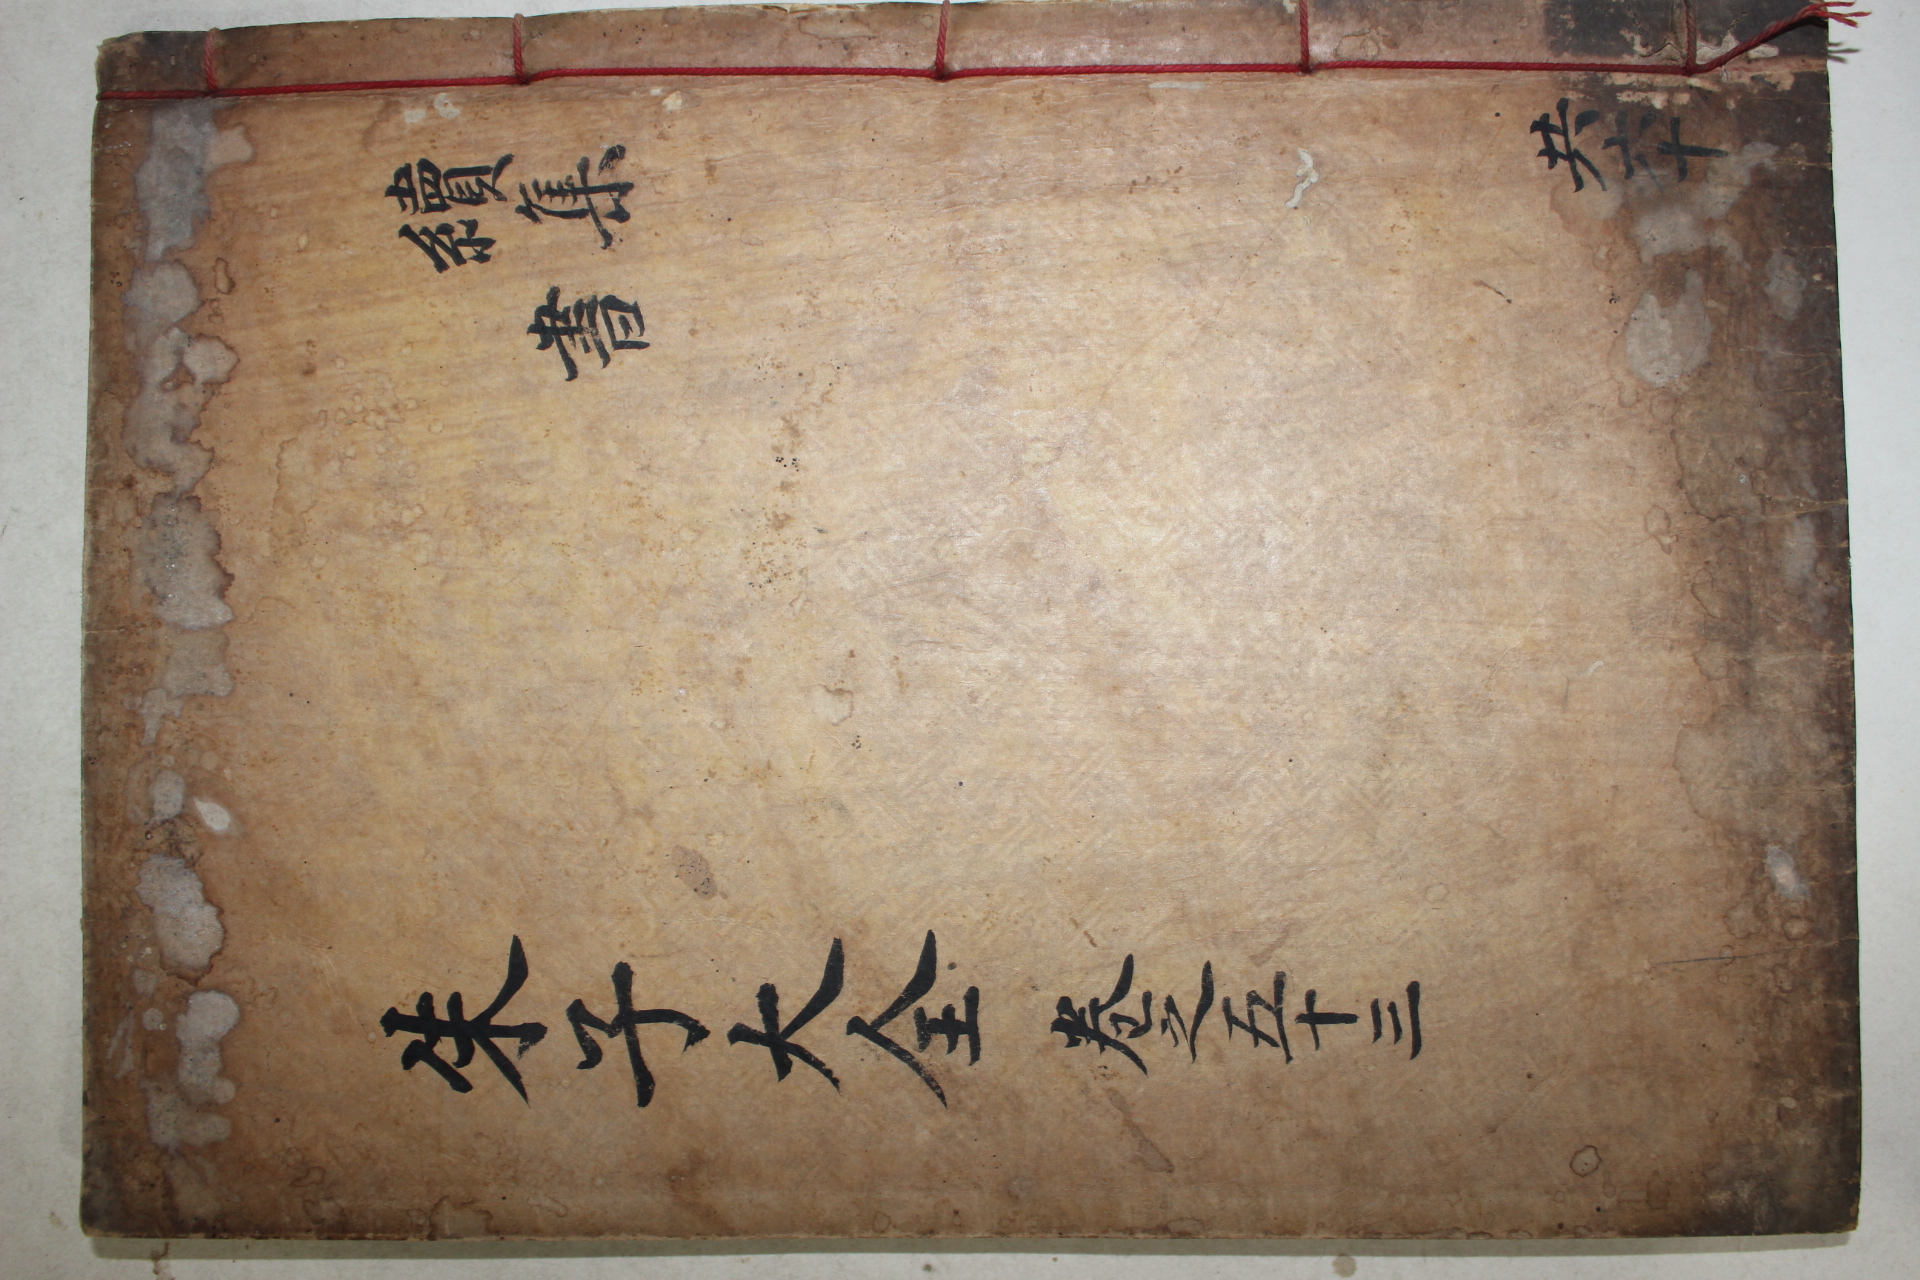 朱子大全 卷之五十三
續集
書
共六十